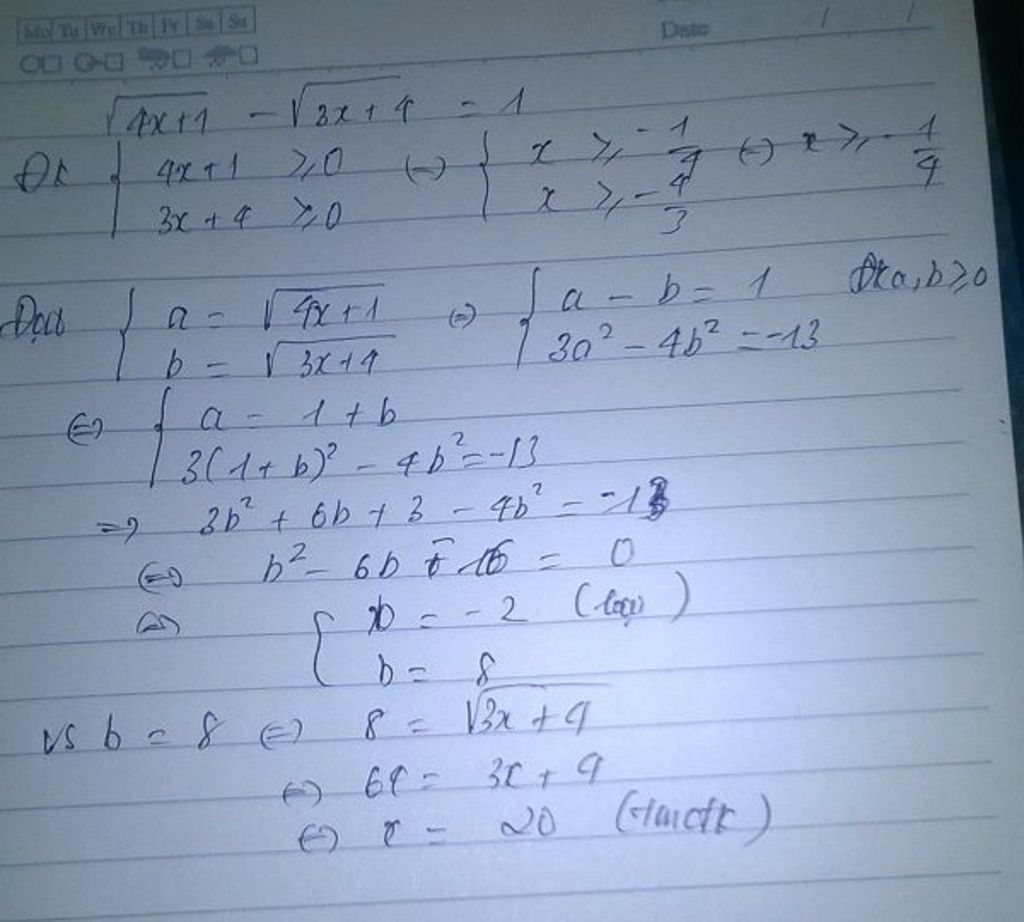 Mo Tu We Th Fr Sa Su
Date / /
√(4x+1) - √(3x+4) = 1
ĐK { 4x+1 ≥ 0 (=) { x ≥ -1/4 (=) x ≥ -1/4
3x+4 ≥ 0 x ≥ -4/3
Đặt { a = √(4x+1) (=) { a - b = 1 ĐK a,b ≥ 0
b = √(3x+4) 3a² - 4b² = -13
(=) { a = 1 + b
3(1+b)² - 4b² = -13
=> 3b² + 6b + 3 - 4b² = -13
(=) b² - 6b - 16 = 0
(=) { b = -2 (loại)
b = 8
vs b = 8 (=) 8 = √(3x+4)
(=) 64 = 3x + 4
(=) x = 20 (tmđk)